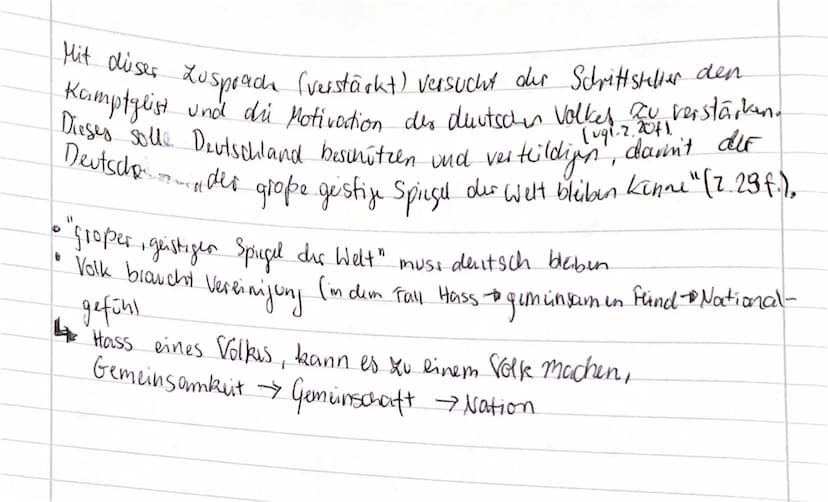 Mit dieser Zusprache (verstärkt) versucht der Schriftsteller den
Kampfgeist und die Motivation des deutschen Volkes zu verstärken.
(vgl. Z. 20f).
Dieses solle Deutschland beschützen und verteidigen, damit der
Deutsche "der große geistige Spiegel der Welt bleiben könne" (Z. 29f.).
• "großer, geistiger Spiegel der Welt" muss deutsch bleiben
• Volk braucht Vereinigung (in dem Fall Hass → gemeinsamen Feind → National-
gefühl
↳ Hass eines Volkes, kann es zu einem Volk machen,
Gemeinsamkeit → Gemeinschaft → Nation